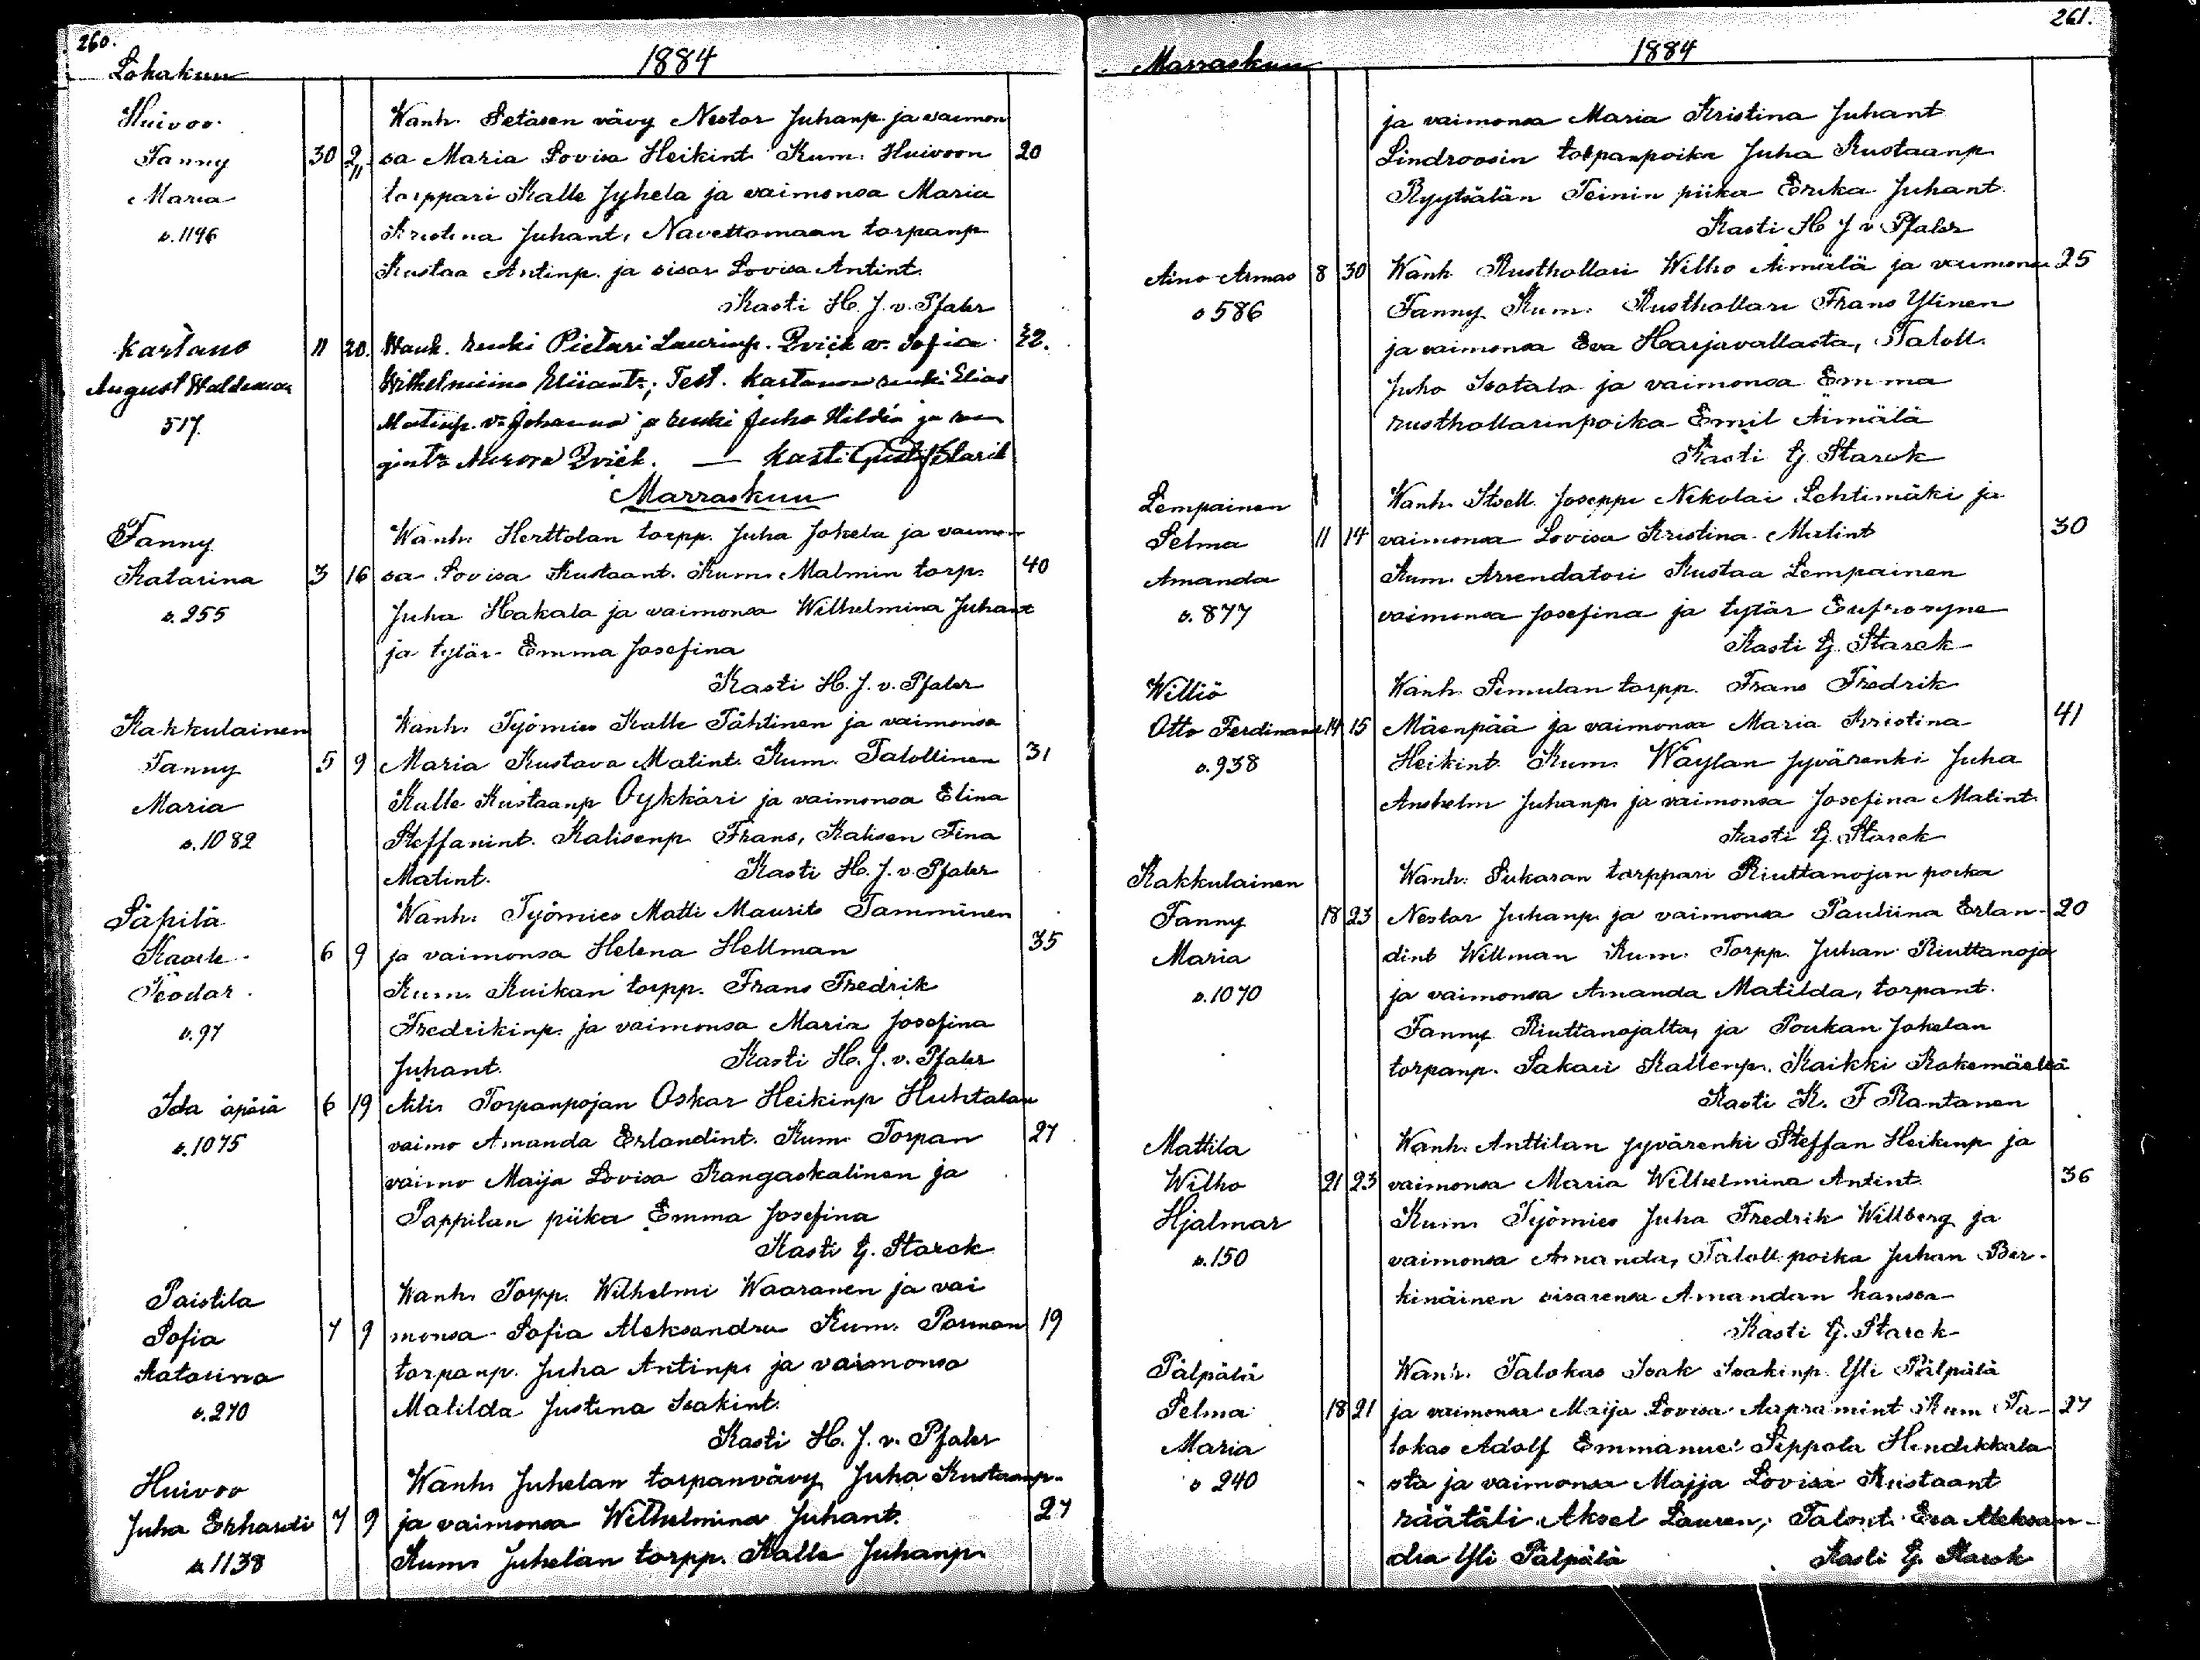 260.
Lokakuu 1884
Huivoo. Wanh. Setäsen vävy Nestor Juhanp. ja vaimon
Fanny 30 2/11 sa Maria Lovisa Heikint. Kum. Huivoon 20
Maria torppari Kalle Jyhela ja vaimonsa Maria
s. 1196 Kristina Juhant, Navettomaan torpanp
Kustaa Antinp. ja sisar Lovisa Antint.
Kasti H. J. v. Pfaler
Kartano 11 20. Wanh. renki Pietari Laurinp. Qvick v. Sofia 32.
August Waldemar Wilhelmiina Eliiant.; Test. Kartanon renki Elias
517. Matinp. v. Johanna ja renki Juho Hildén ja ren
gint. Aurora Qvick. — Kasti
Marraskuu
Fanny Wanh. Herttolan torpp. Juha Jokela ja vaimon
Katarina 3 16 sa Lovisa Kustaant. Kum. Malmin torp. 40
s. 255 Juha Hakala ja vaimonsa Wilhelmina Juhant
ja tytär Emma Josefina
Kasti H. J. v. Pfaler
Kakkulainen Wanh. Työmies Kalle Tähtinen ja vaimonsa
Fanny 5 9 Maria Kustava Matint. Kum. Talollinen 31
Maria Kalle Kustaanp Öykkäri ja vaimonsa Elina
s. 1082 Steffanint. Kalisenp Frans, Kalisen Fina
Matint. Kasti H. J. v. Pfaler
Säpilä Wanh. Työmies Matti Maurits Tamminen
Kaarle 6 9 ja vaimonsa Helena Hellman 35
Teodor. Kum. Kuikan torpp. Frans Fredrik
s. 97 Fredrikinp. ja vaimonsa Maria Josefina
Juhant. Kasti H. J. v. Pfaler
Ida äpärä 6 19 Äiti Torpanpojan Oskar Heikinp Huhtalan
s. 1075 vaimo Amanda Erlandint. Kum. Torpan 27
vaimo Maija Lovisa Kangaskalinen ja
Pappilan piika Emma Josefina
Kasti G. Starck
Paistila Wanh. Torpp. Wilhelmi Waaranen ja vai
Sofia 7 9 monsa Sofia Aleksandra Kum. Pouman 19
Katarina torpanp. Juha Antinp. ja vaimonsa
s. 270 Matilda Justina Isakint.
Kasti H. J. v. Pfaler
Huivoo Wanh. Juhelan torpanvävy Juha Kustaanp.
Juha Erhardi 7 9 ja vaimonsa Wilhelmina Juhant. 27
s. 1138 Kum. Juhelan torpp. Kalle Juhanp.
261.
Marraskuu 1884
ja vaimonsa Maria Kristina Juhant
Lindroosin torpanpoika Juha Kustaanp
Ryytsälän Teinin piika Erika Juhant.
Kasti H J v. Pfaler
Aino Armas 8 30 Wanh Rusthollari Wilho Äimälä ja vaimonsa 25
s 586 Fanny Kum. Rusthollari Frans Ylinen
ja vaimonsa Eva Harjavallasta, Taloll.
Juho Isotalo ja vaimonsa Emma
rusthollarinpoika Emil Äimälä
Kasti G. Starck
Lempainen Wanh. Itsell. Joseppi Nikolai Lehtimäki ja
Selma 11 14 vaimonsa Lovisa Kristina Matint 30
Amanda Kum. Arrendatori Kustaa Lempainen
s. 877 vaimonsa Josefina ja tytär Eufrosyne
Kasti G. Starck
Williö Wanh. Simulan torpp. Frans Fredrik
Otto Ferdinand 14 15 Mäenpää ja vaimonsa Maria Kristina 41
s. 938 Heikint. Kum. Wäylan jyvärenki Juha
Anshelm Juhanp. ja vaimonsa Josefina Matint.
Kasti G. Starck
Kakkulainen Wanh. Sukaran torppari Riuttanojan poika
Fanny 18 23 Nestor Juhanp. ja vaimonsa Pauliina Erlan- 20
Maria dint Willman Kum. Torpp. Juhan Riuttanoja
s. 1070 ja vaimonsa Amanda Matilda, torpant.
Fanny Riuttanojalta, ja Poukan Jokelan
torpanp. Sakari Kallenp. Kaikki Kokemäeltä
Kasti K. F Rantanen
Mattila Wanh. Anttilan jyvärenki Steffan Heikinp ja
Wilho 21 23 vaimonsa Maria Wilhelmina Antint. 36
Hjalmar Kum. Työmies Juha Fredrik Willberg ja
s. 150 vaimonsa Amanda, Taloll. poika Juhan Ber-
kinäinen sisarensa Amandan kanssa
Kasti G. Starck
Pälpälä Wanh. Talokas Isak Isakinp. Yli Pälpälä
Selma 18 21 ja vaimonsa Maija Lovisa Aapramint Kum Ta- 27
Maria lokas Adolf Emmanuel Seppola Hindikkala
s 240 sta ja vaimonsa Maija Lovisa Kustaant
räätäli Aksel Lauren, Talont. Eva Aleksan-
dra Yli Pälpälä Kasti G. Starck